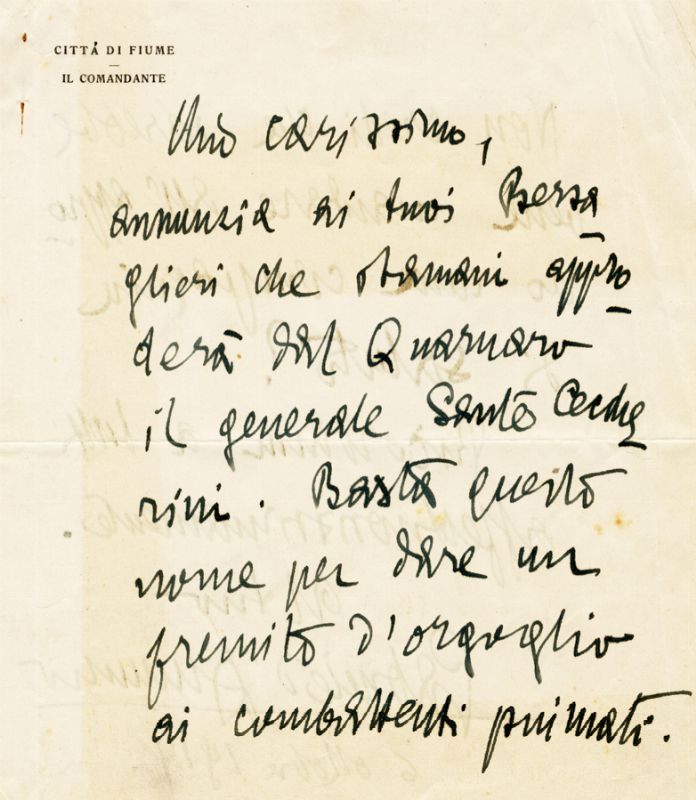 CITTÀ DI FIUME
IL COMANDANTE
Mio carissimo,
annunzia ai tuoi Bersa
glieri che stamani appro
derà dal Quarnaro
il generale Sante Cecche
rini. Basta questo
nome per dare un
fremito d'orgoglio
ai combattenti piumati.